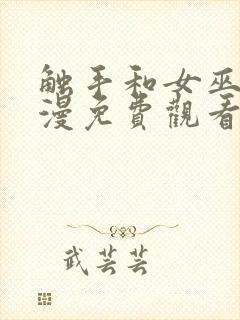 触手和女巫
漫免費觀看
武芸芸